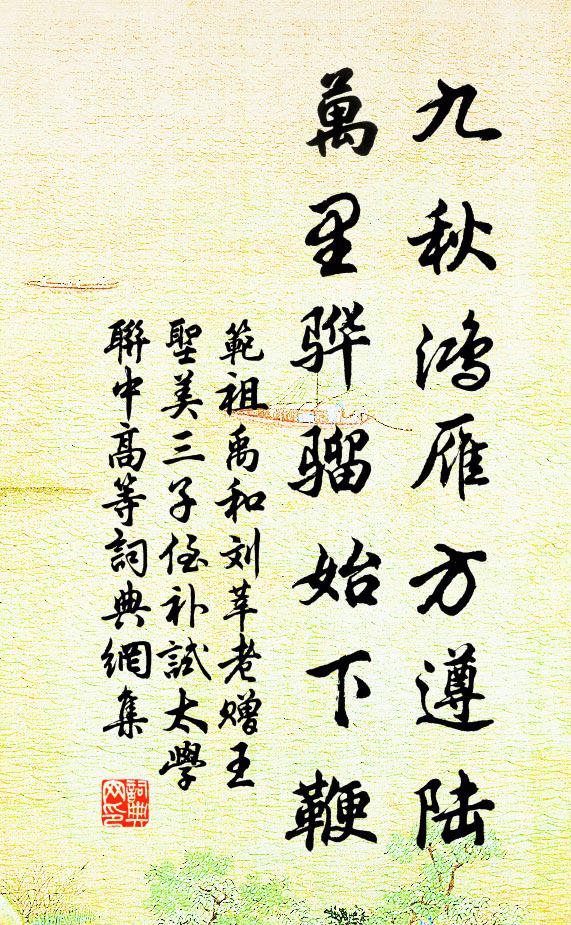 九秋鸿雁方遵陆
萬里骅骝始下鞭
範祖禹和刘莘老赠王
聖美三子侄补試太學
聯中高等詞典網集
詞典
网印